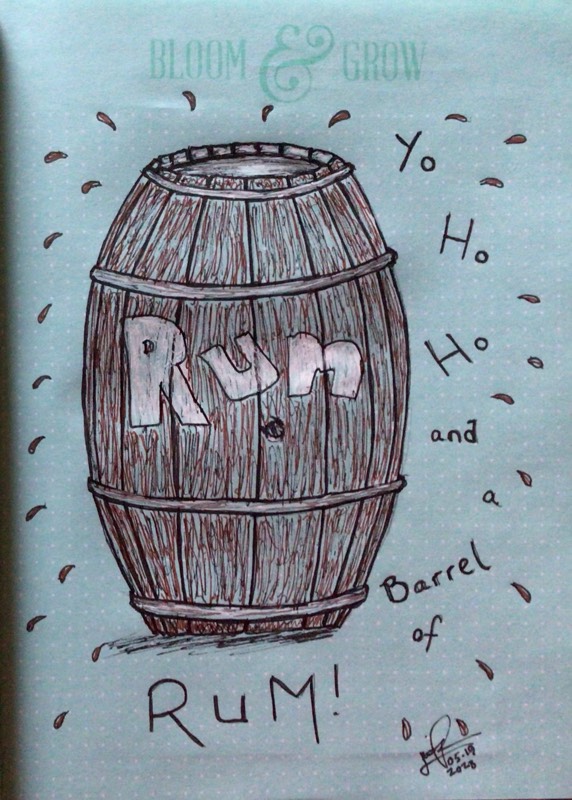 BLOOM & GROW
Yo
Ho
Ho
and
a
Barrel
of
RuM!
Run
05.19